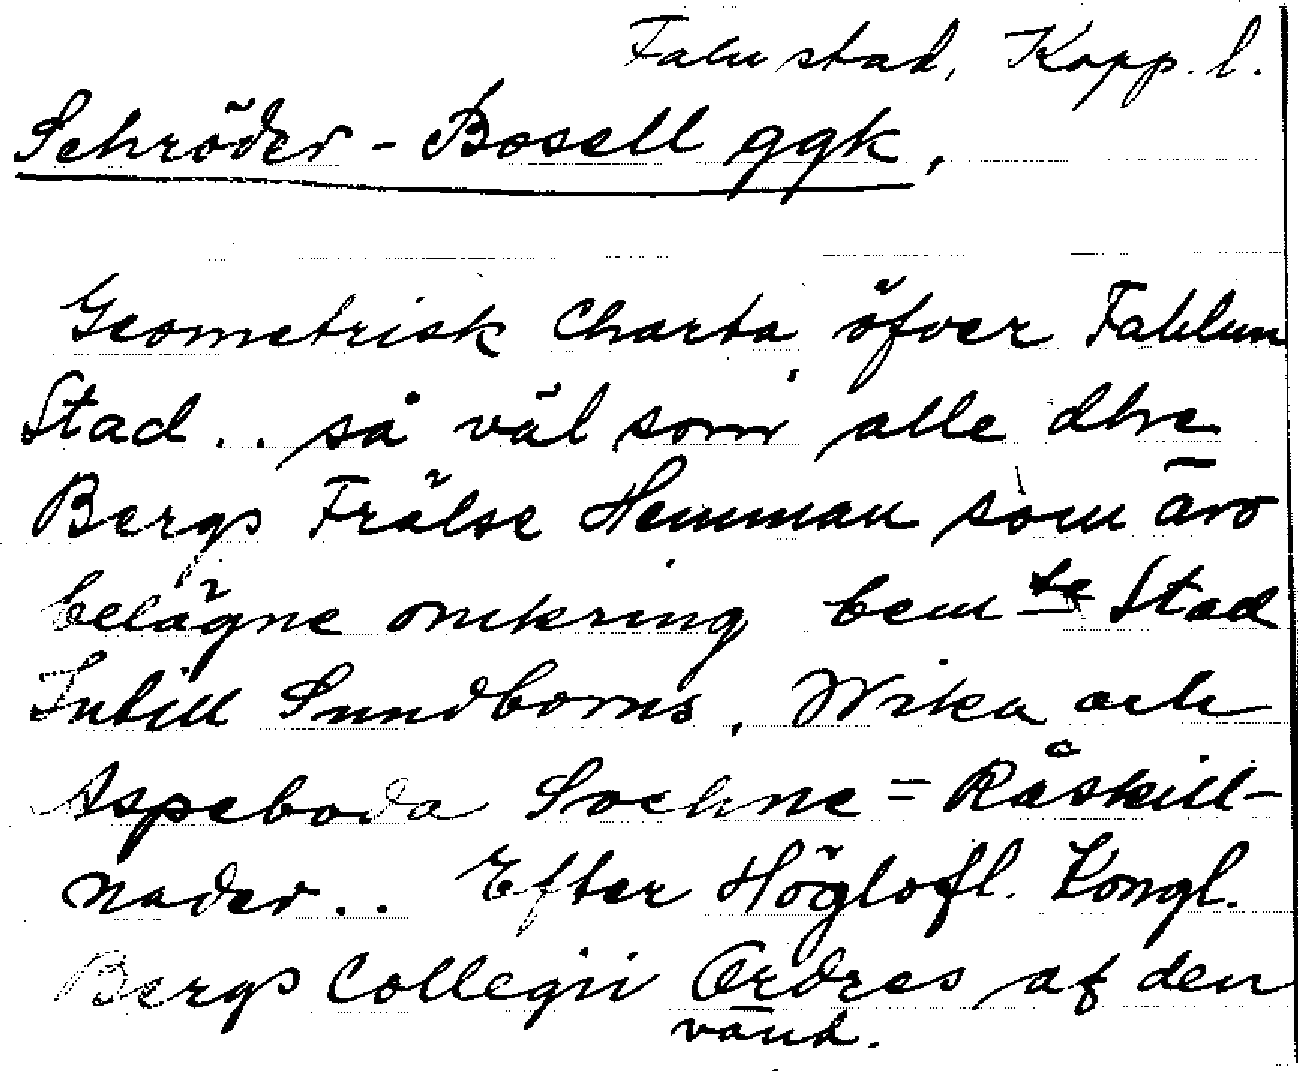 Falu stad, Kopp. l.
Schröder - Bosell ggk,
Geometrisk Charta öfver Fahlun
Stad .. så väl som alle dhe
Bergs Frälse Hemman som äro
belägne omkring bem te Stad
Intill Sundborns, Wika och
Aspeboda Sochne = Råskill-
nader .. Efter Höglofl. Kongl.
Bergs Collegii Ordres af den
vänd.